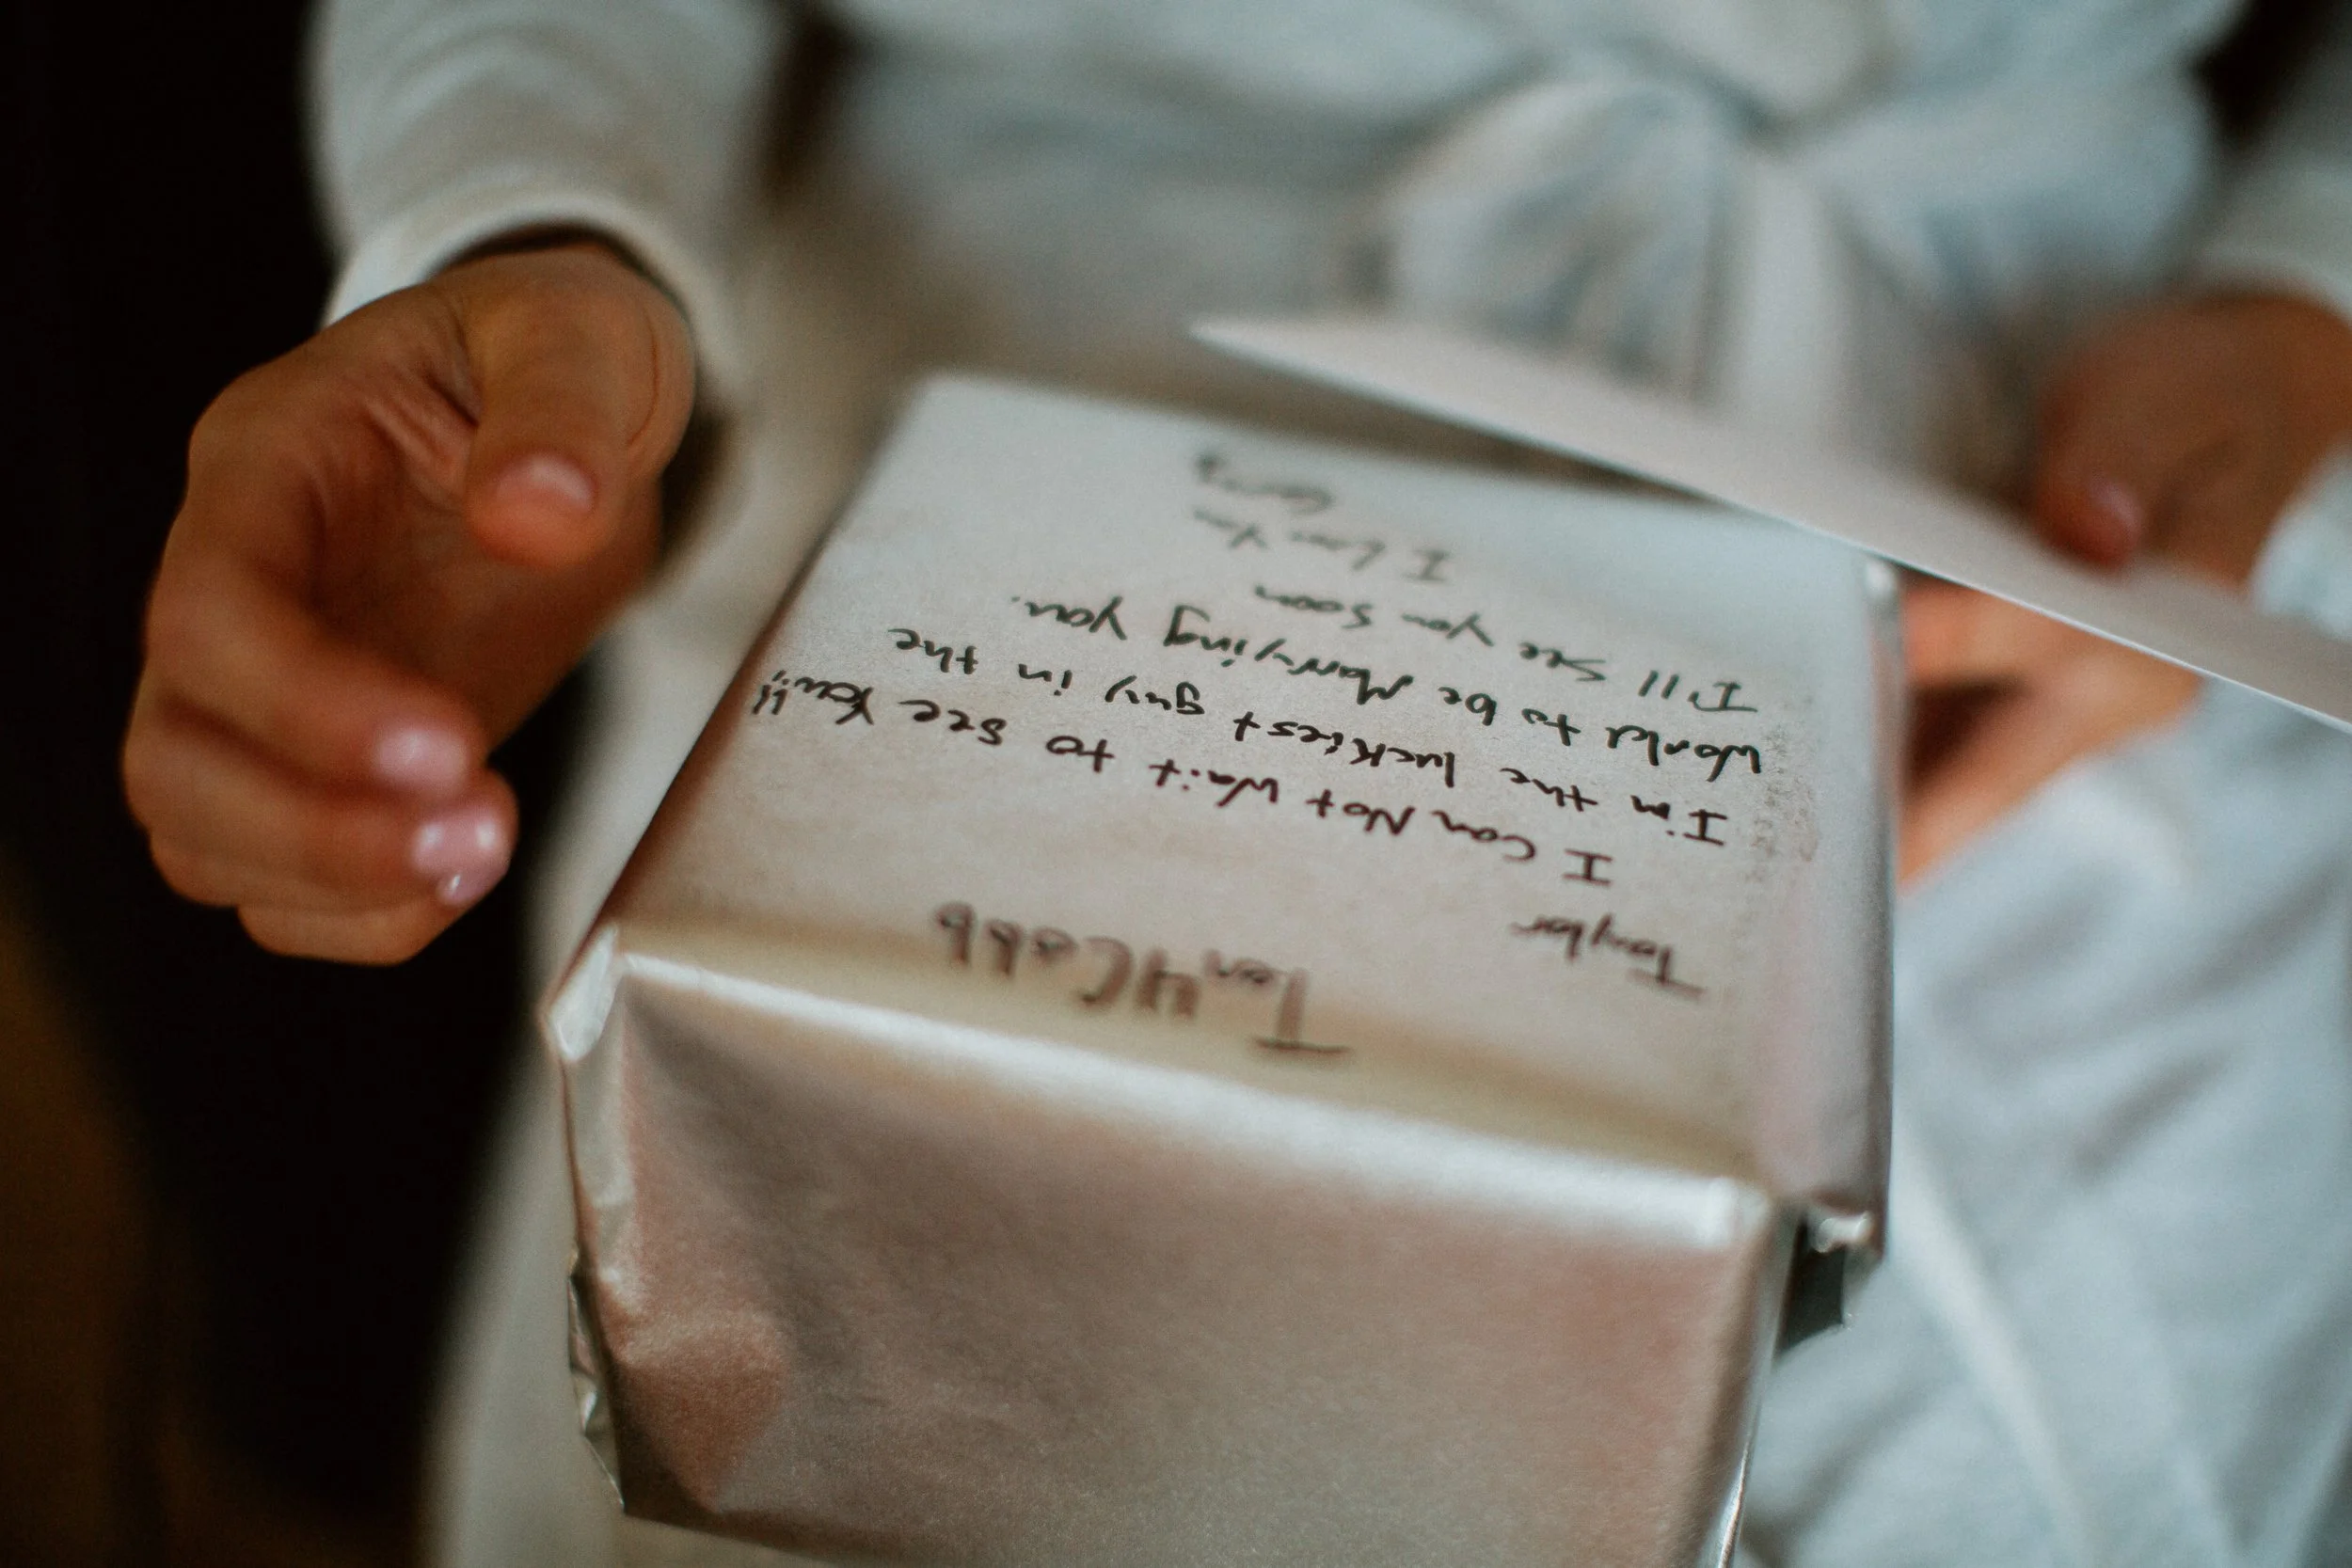 Tay4Cabb
Taylor
I Can Not Wait to see You!!
I'm the luckiest guy in the
World to be Marrying you.
I'll see you soon
I Love You